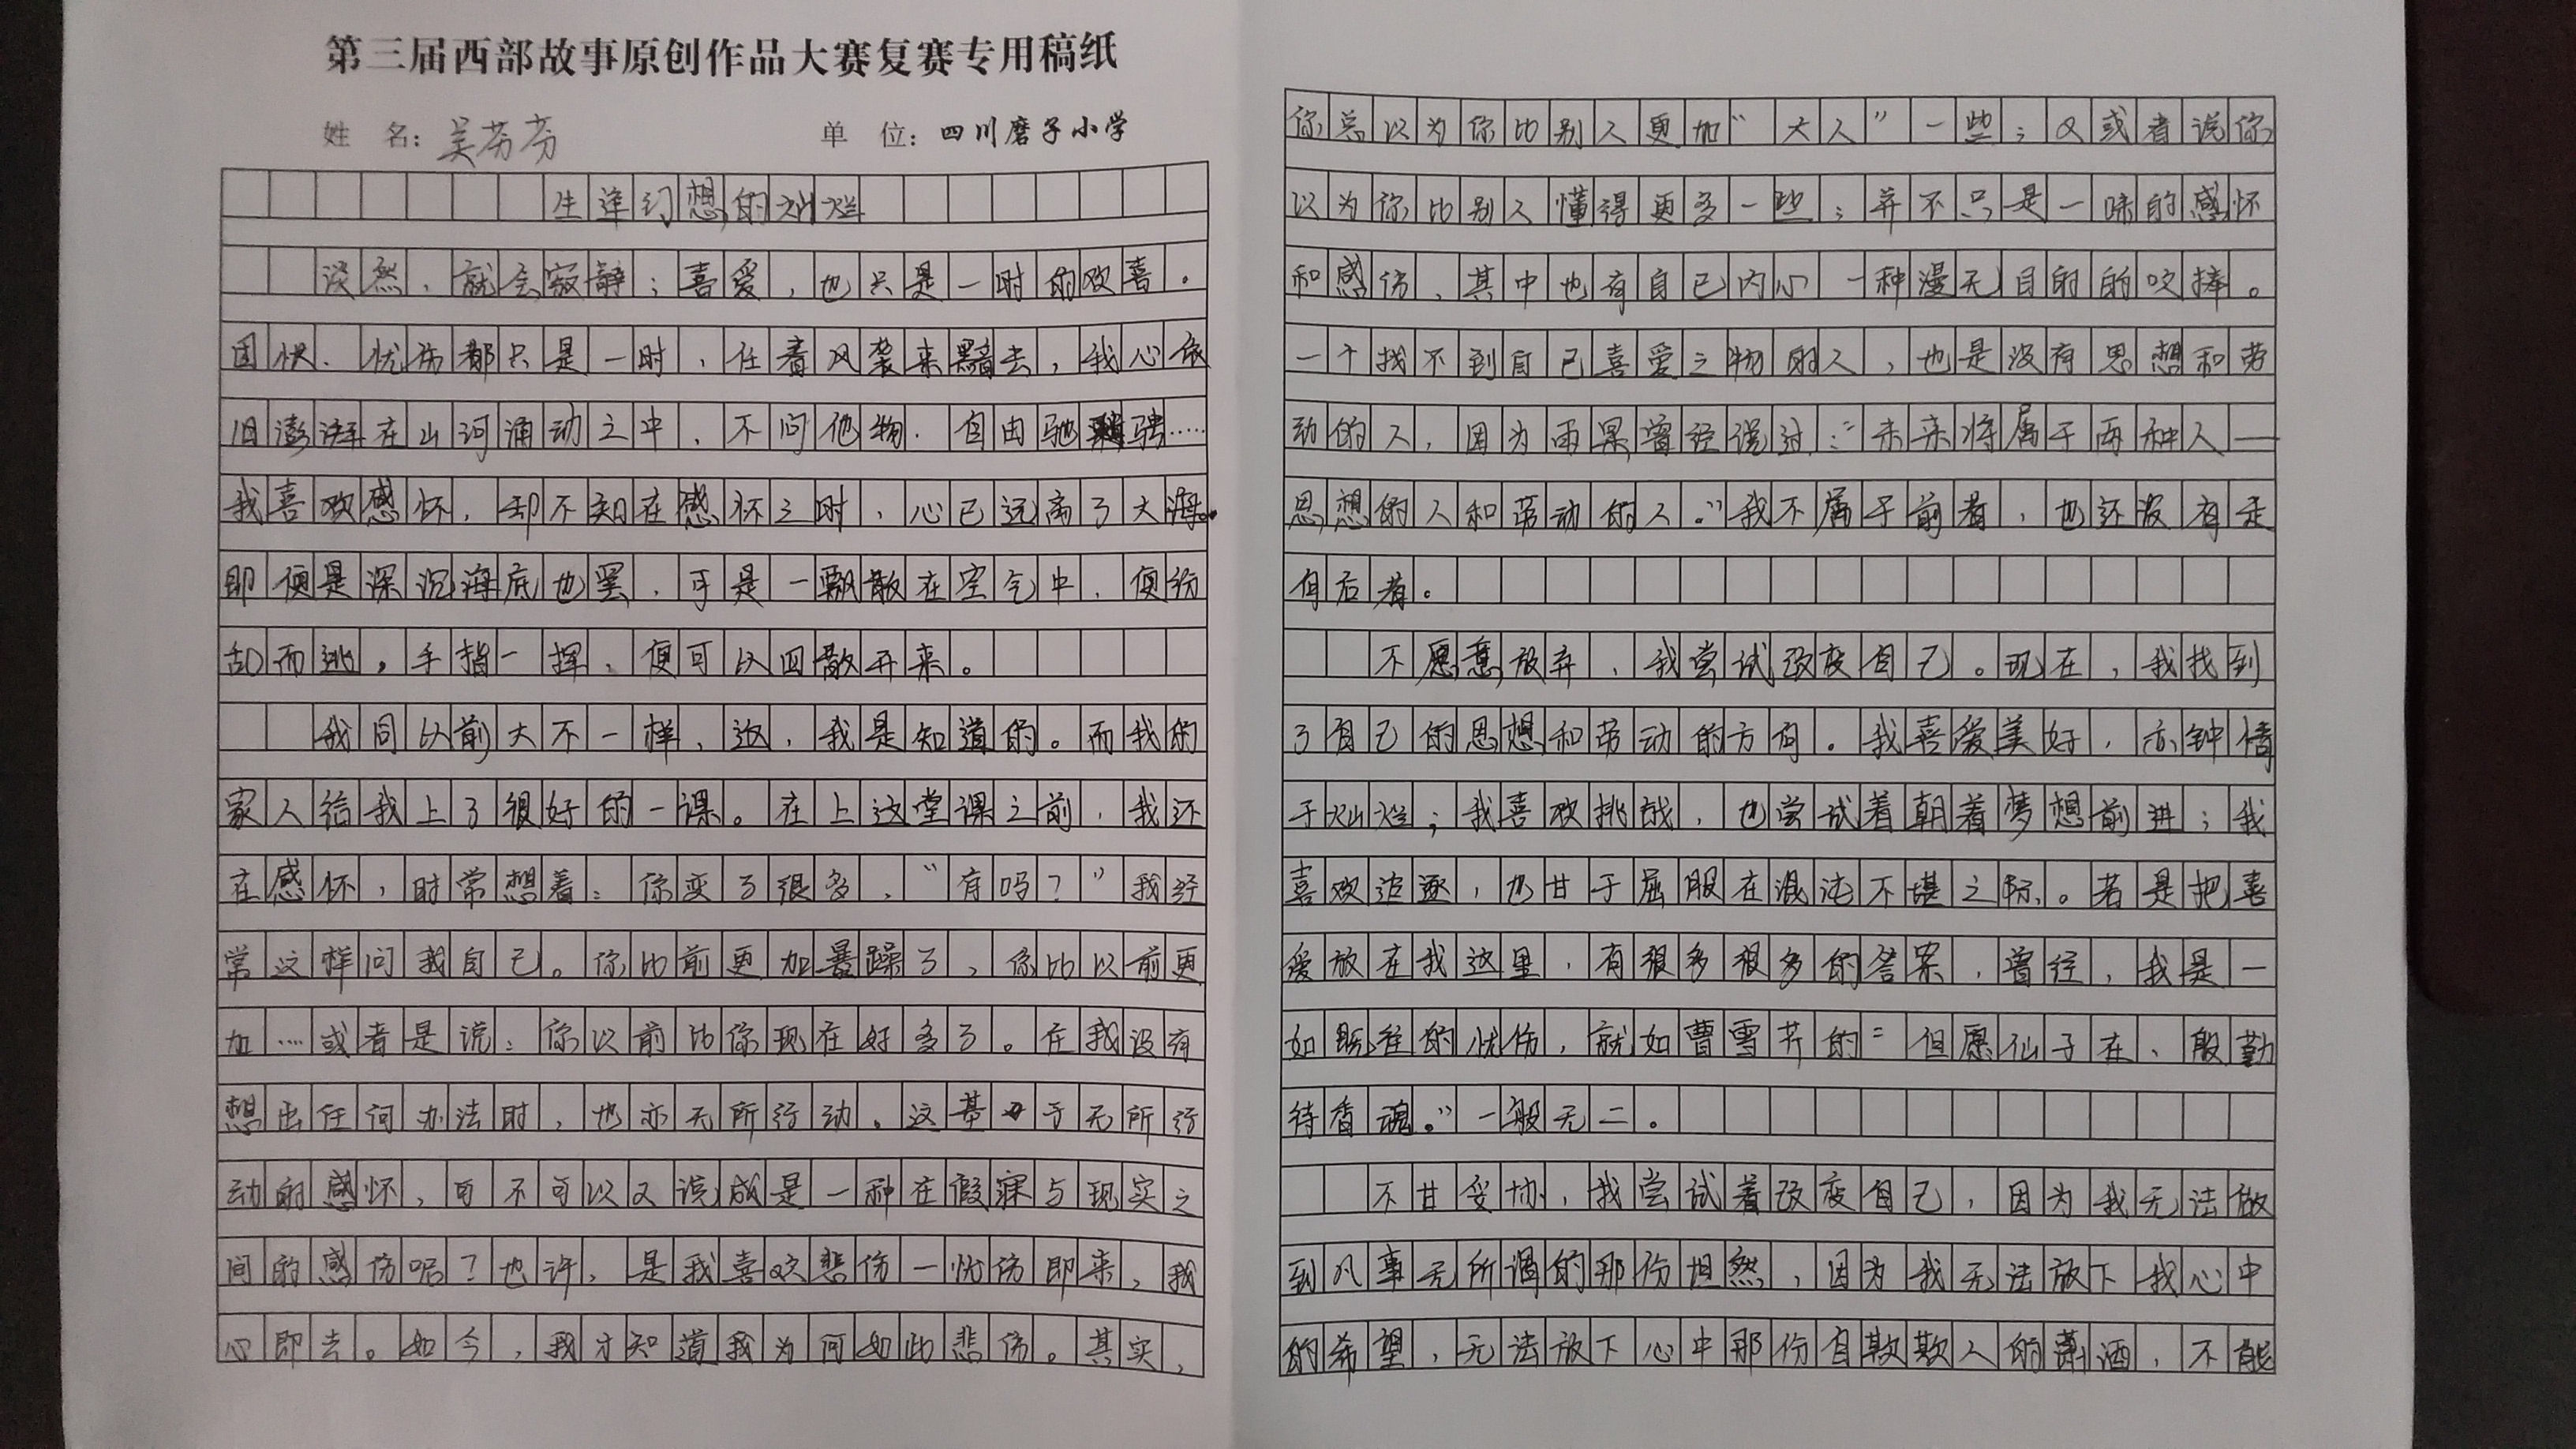 第三届西部故事原创作品大赛复赛专用稿纸
姓 名：吴芬芬 单 位：四川磨子小学
生逢幻想的灿烂
淡然，就会寂静；喜爱，也只是一时的欢喜。
困惧、忧伤都只是一时，任着风袭来黯去，我心依
旧澎湃在山河涌动之中，不问他物，自由驰骋……
我喜欢感怀，却不知在感怀之时，心已远离了大海。
即便是深沉海底也罢，可是一飘散在空气中，便纷
乱而逃。手指一挥，便可以四散开来。
我同以前大不一样，这，我是知道的。而我的
家人给我上了很好的一课。在上这堂课之前，我还
在感怀，时常想着：你变了很多，“有吗？”我经
常这样问我自己。你比前更加暴躁了，你比以前更
加…或者是说：你以前比你现在好多了。在我没有
想出任何办法时，也亦无所行动。这基于无所行
动的感怀，可不可以又说成是一种在假寐与现实之
间的感伤呢？也许，是我喜欢悲伤—忧伤即来，我
心即去。如今，我才知道我为何如此悲伤。其实，
你总以为你比别人更加“大人”一些；又或者说你
以为你比别人懂得更多一些；并不只是一味的感怀
和感伤，其中也有自己内心一种漫无目的的吹捧。
一个找不到自己喜爱之物的人，也是没有思想和劳
动的人，因为雨果曾经说过：“未来将属于两种人——
思想的人和劳动的人。”我不属于前者，也还没有走
向后者。
不愿意放弃，我尝试改变自己。现在，我找到
了自己的思想和劳动的方向。我喜爱美好，亦钟情
于灿烂；我喜欢挑战，也尝试着朝着梦想前进；我
喜欢追逐，也甘于屈服在混沌不堪之际。若是把喜
爱放在我这里，有很多很多的答案，曾经，我是一
如既往的忧伤，就如曹雪芹的“但愿仙子在，殷勤
待香魂。”一般无二。
不甘妥协，我尝试着改变自己，因为我无法做
到凡事无所谓的那份坦然，因为我无法放下我心中
的希望，无法放下心中那份自欺欺人的潇洒，不能